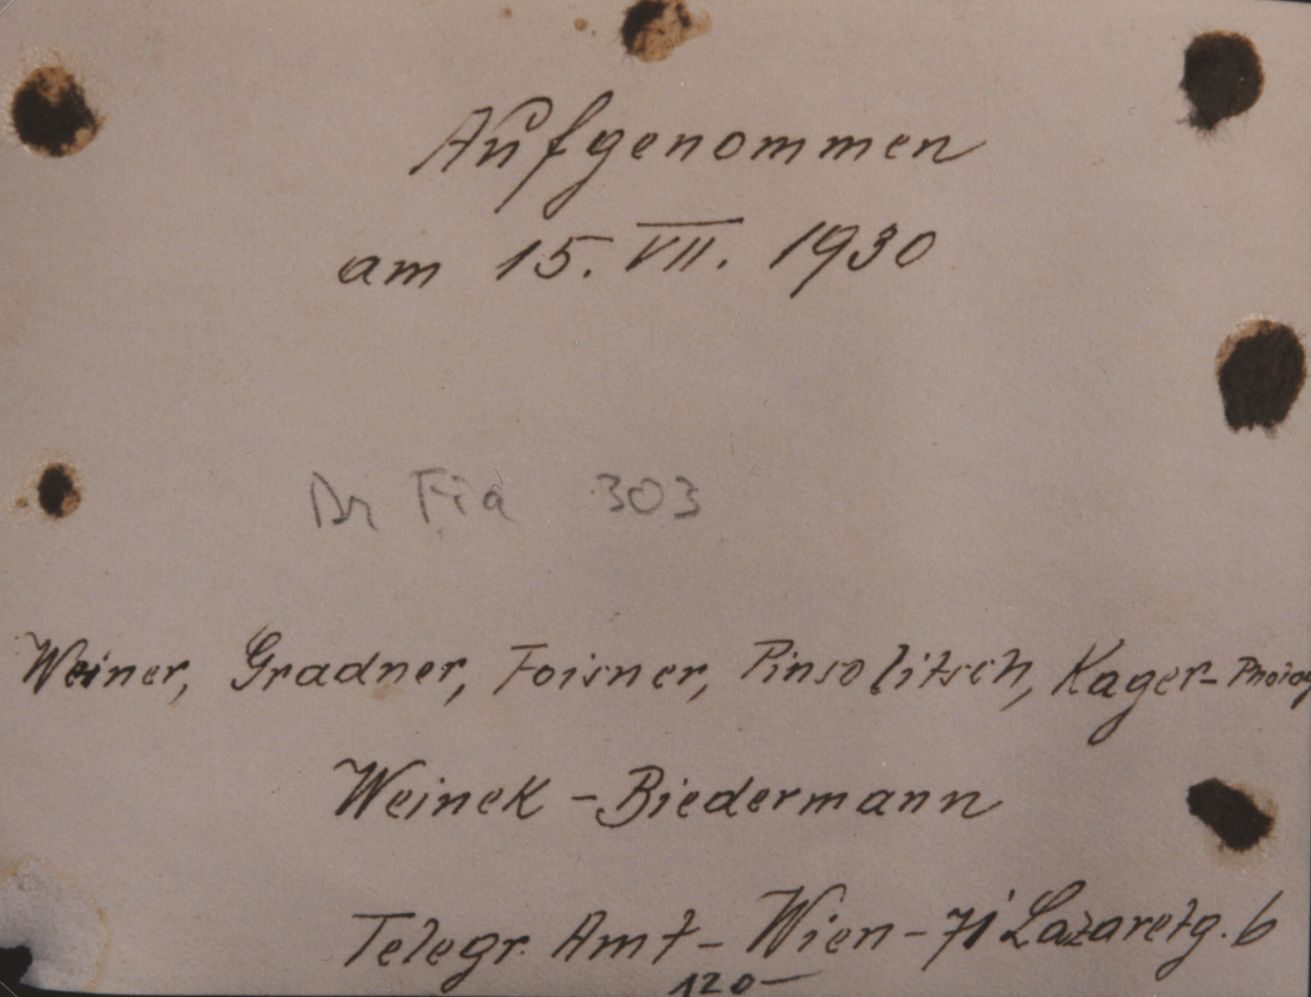 Aufgenommen
am 15. VII. 1930
Dr Fia 303
Weiner, Gradner, Foisner, Pinsolitsch, Kager-Photog
Weinek - Biedermann
Telegr. Amt - Wien - 71 Lazaretg. 6
120-